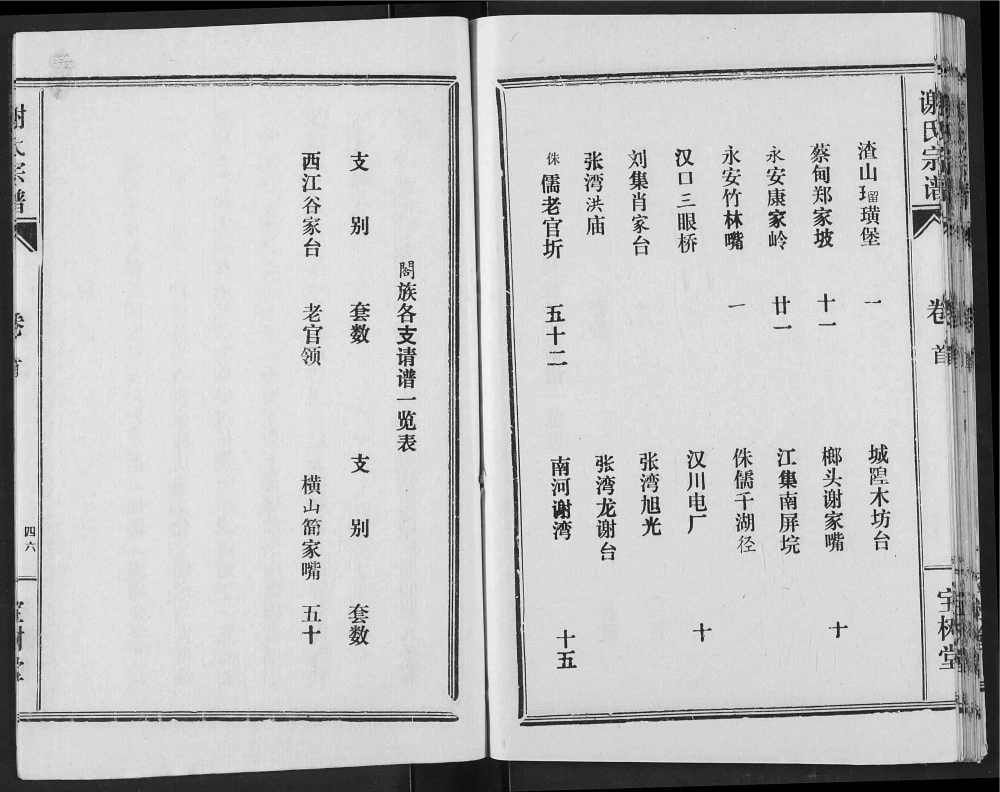 谢氏宗谱 卷首 宝树堂
渣山瑠璜堡 一 城隍木坊台
蔡甸郑家坡 十一 榔头谢家嘴 十
永安康家岭 廿一 江集南屏垸
永安竹林嘴 一 侏儒千湖径
汉口三眼桥 汉川电厂 十
刘集肖家台 张湾旭光
张湾洪庙 张湾龙谢台
侏儒老官圻 五十二 南河谢湾 十五
閤族各支请谱一览表
支别 套数 支别 套数
西江谷家台 老官领 横山简家嘴 五十
谢氏宗谱 卷首 四六 宝树堂